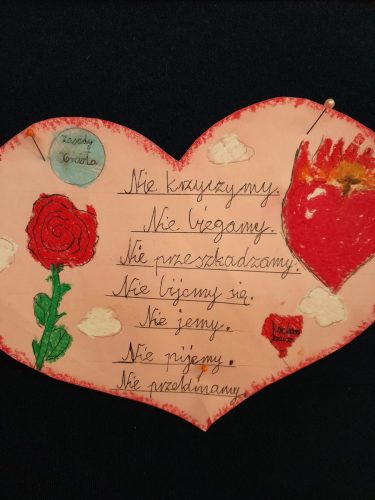 Zasady
Kościoła
Nie krzyczymy.
Nie biegamy.
Nie przeszkadzamy.
Nie bijemy się.
Nie jemy.
Nie pijemy.
Nie przeklinamy.